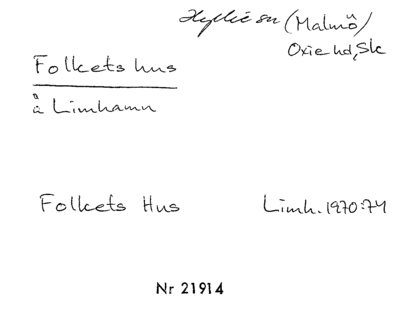 Hyllie sn (Malmö)
Oxie hd, Sk
Folkets hus
å Limhamn
Folkets Hus Limh. 1970:74
Nr 21914